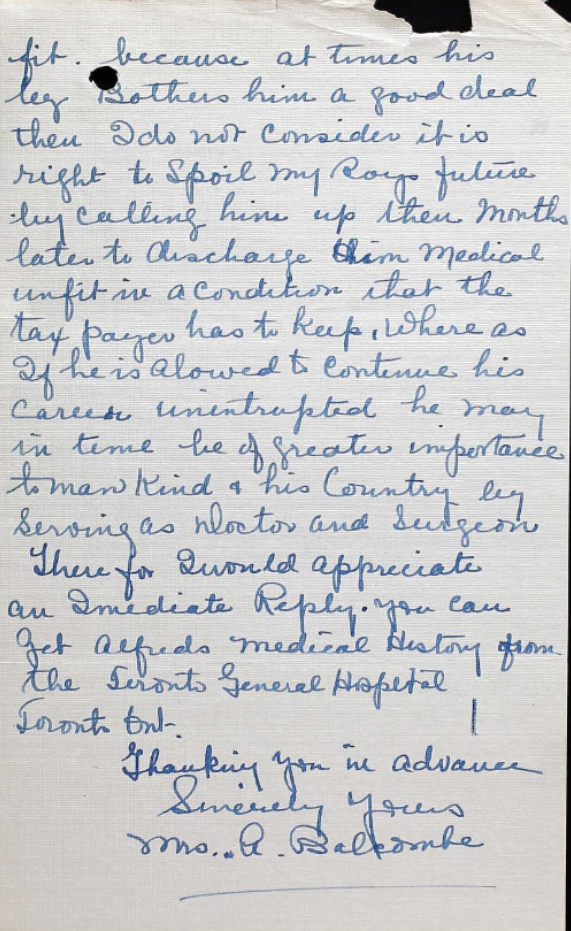 fit. because at times his
leg Bothers him a good deal
then I do not consider it is
right to Spoil my Boys future
by calling him up then Months
later to discharge him Medical
unfit in a condition that the
tax payer has to keep, Where as
If he is alowed to contenue his
career unintrupted he may
in time be of greater importance
to man Kind & his Country by
Serving as Doctor and Surgeon
There for I would appreciate
an Imediate Reply. you can
Get Alfreds medical History from
the Toronto General Hospetal
Toronto Ont.
Thanking you in advance
Sincerely Yours
Mrs. A. Balcombe